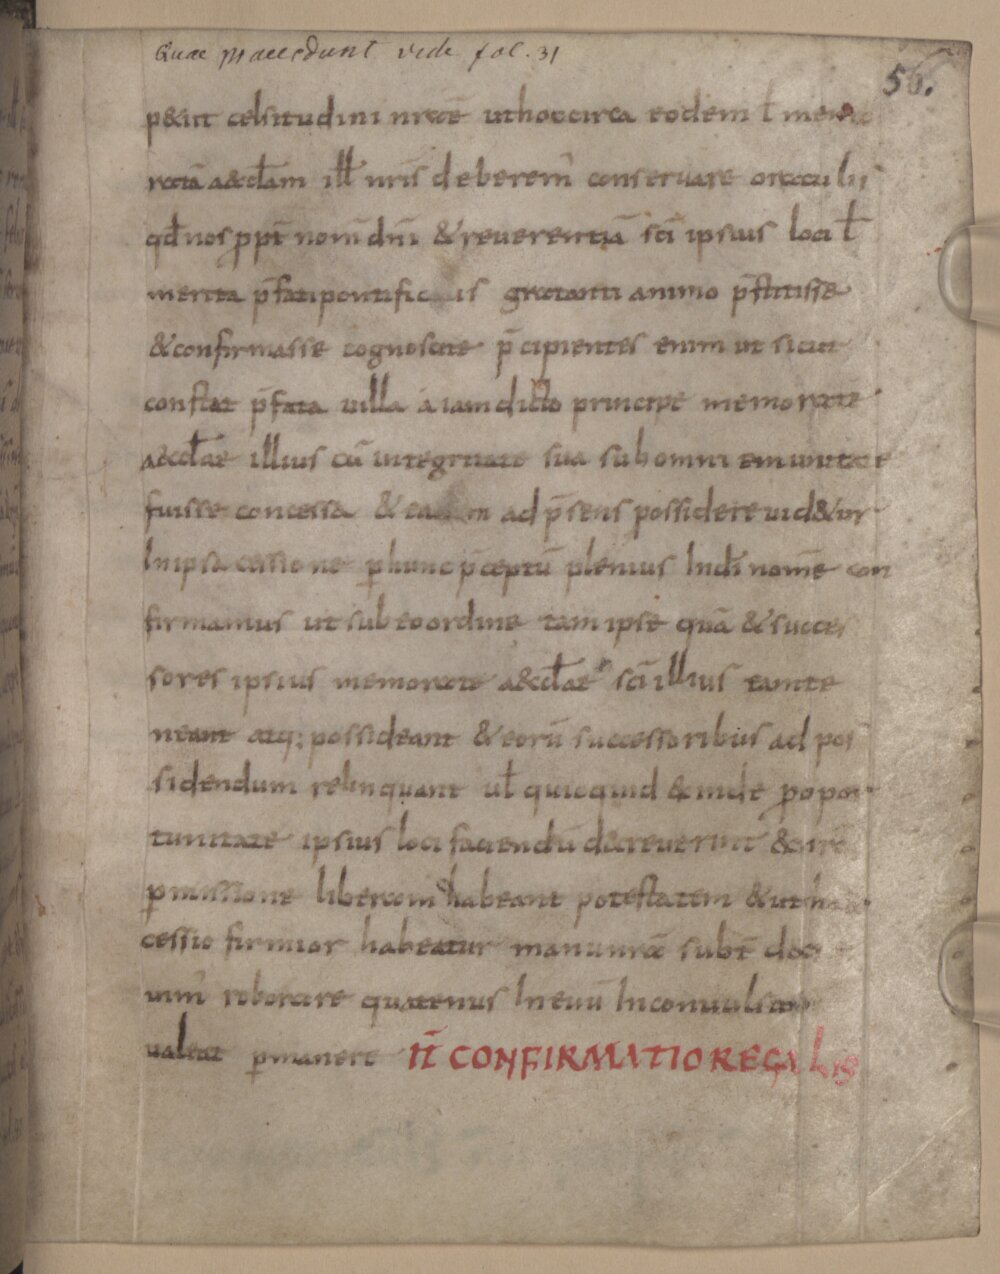 Quae praecedunt vide fol. 31
56.
p&iit celsitudini nrae ut hoc circa eodem ł memo
ratā aecclam ill nris deberem̄ conservare oraculis
qd̄ nos ꝓpt̄ nom̄ dn̄i & reverentiā sc̄i ipsius loci ł
merita p̄fati pontificis gratanti animo p̄stitisse
& confirmasse cognoscite p̄cipientes enim ut sicut
constat p̄fata villa a iam dicto principe memorate
aecclae illius cū integritate sua sub omni emunitate
fuisse concessa & eadem ad p̄sens possidere vid&ur
In ipsa cessione ꝑ hunc p̄ceptū plenius In dī nom̄e con
firmamus ut sub eo ordine tam ipse quā & succes
sores ipsius memorate aecclae sc̄i illius tam te
neant atq; possideant & eorū successoribus ad pos
sidendum relinquant ul quicquid & inde ꝓ opor
tunitate ipsius loci faciendū decreverint & nr̄e
ꝑmissione liberam habeant potestatem & ut haec
cessio firmior habeatur manu nrae subt̄ decr
vim̄ roborare quatenus In evū Inconvulsam
valeat ꝑmanere IT̄ CONFIRMATIO REGALIS